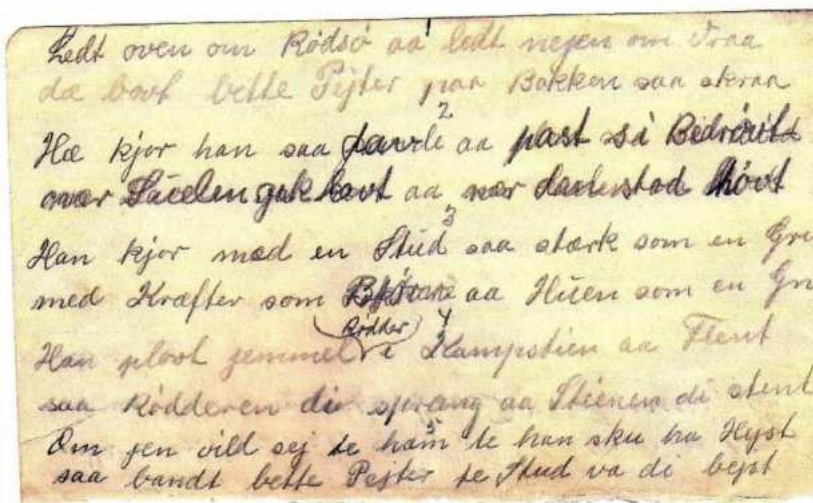 Ledt oven om Rødsø aa ledt nejen om Traa
dæ bovt bette Pejter paa Bakken saa skraa
2
Hæ kjør han saa aa past si Bedröut
aa nær hövt
3
Han kjør mæd en Stud saa stærk som en
med Kræfter som aa Hüen som en
(Rödder) 4
Han plovt jemmel i Kampstien aa Flent
saa Rödderen di sprang aa Stienen di stent
5
Om jen vild sej te ham te han sku ha Hejst
saa bandt bette Pejter te Stud va di bejst